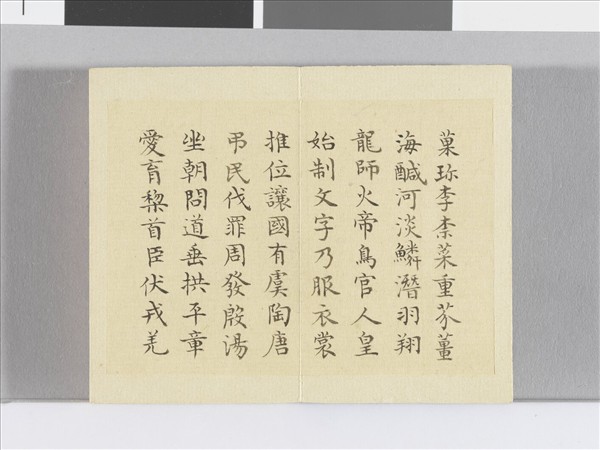 菓珎李柰菜重芥薑
海醎河淡鱗潛羽翔
龍師火帝鳥官人皇
始制文字乃服衣裳
推位讓國有虞陶唐
弔民伐罪周發殷湯
坐朝問道垂拱平章
愛育黎首臣伏戎羌